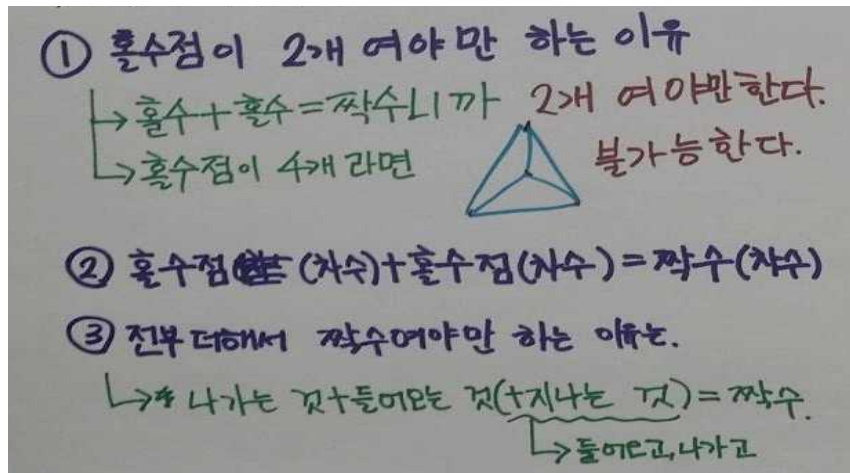 ① 홀수점이 2개 여야만 하는 이유
→ 홀수+홀수=짝수니까 2개 여야만한다.
→ 홀수점이 4개 라면 불가능한다.
② 홀수점 (차수)+홀수점(차수)=짝수(차수)
③ 전부 더해서 짝수여야만 하는 이유는.
→ 나가는 것+들어오는 것(+지나는 것)=짝수.
→ 들어오고, 나가고